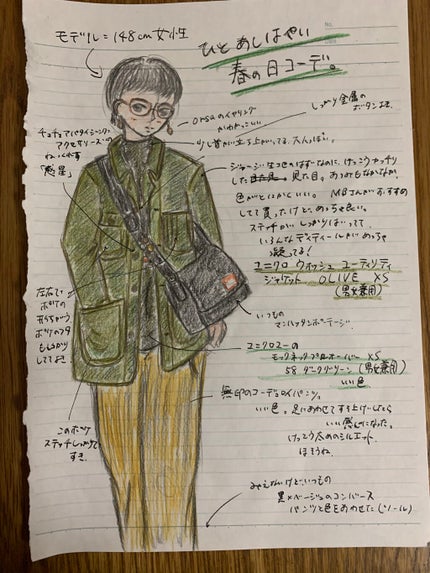 モデル=148cm女性
ひと あしはやい
春の日コーデ。
No.
orsaのイヤリング
かわかっこいい
しっかり金属の
ボタンよき
チョチョマバタイシージャン
アクセサリーズの
ねっくれす
「惑星」
少し首が立ち上がってる、大人っぽい。
ジャージ生コセのはずなのに、けっこうカッチリ
した 見た目。あつみもなかなか。
色がとにかくいい。MBさんがおすすめ
してて買ったけど、めっちゃ良い。
ステッチがしっかりはいってて
いろんなディティールがめっちゃ
凝ってる!
ユニクロ ウォッシュ ユーティリティ
ジャケット OLIVE XS
(男女兼用)
左右で
ポッケの
形ちがう
ポッケのフタ
もしっかり
しててよき
いつもの
マンハッタンポーテージ。
ユニクロユーの
モックネックプルオーバー XS
58 ダークグリーン (男女兼用)
いい色
無印のコーデュロイパンツ。
いい色。足にあわせてすそ上げしたら
いい感じになった。
けっこう太めのシルエット
ほそうね。
このポッケ
ステッチしっかりで
すき。
みえないけど、いつもの
黒×ベージュのコンバース
パンツと色をあわせた(ソール)